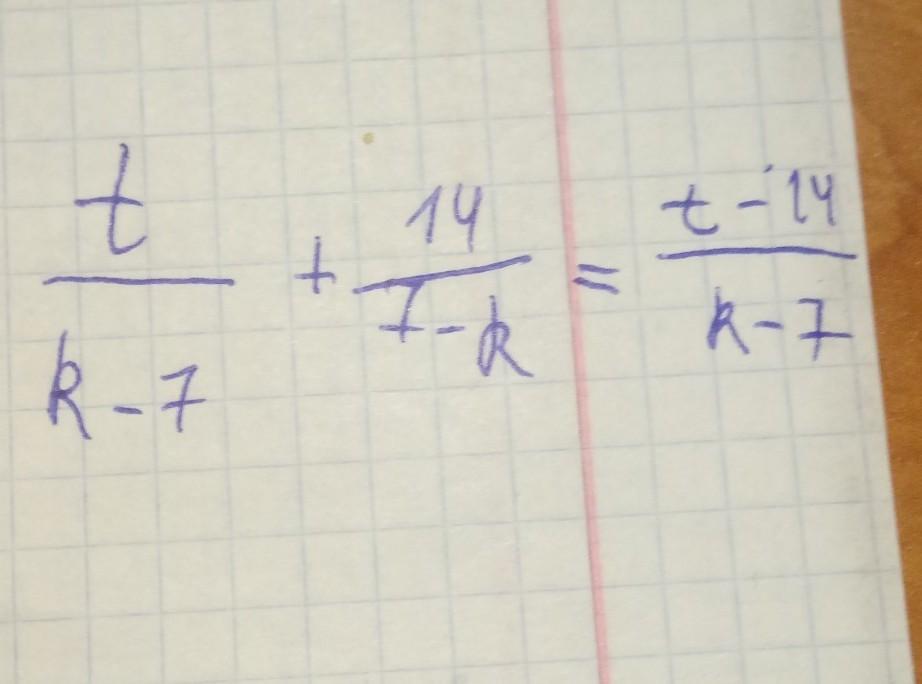 t/(k-7) + 14/(7-k) = (t-14)/(k-7)